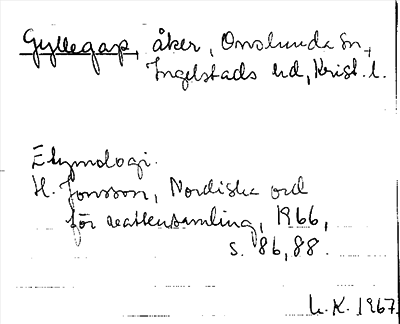 Gyllegap, åker, Onslunda sn,
Ingelstads hd, Krist. l.
Etymologi.
H. Jonsson, Nordiska ord
för vattensamling, 1966,
s. 86, 88.
L.K. 1967.